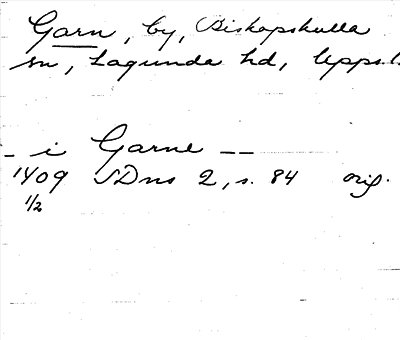 Garn, by, Biskopskulla
sn, Lagunda hd, Upps.l.
- i Garne --
1409 SDns 2, s. 84 orig.
1/2